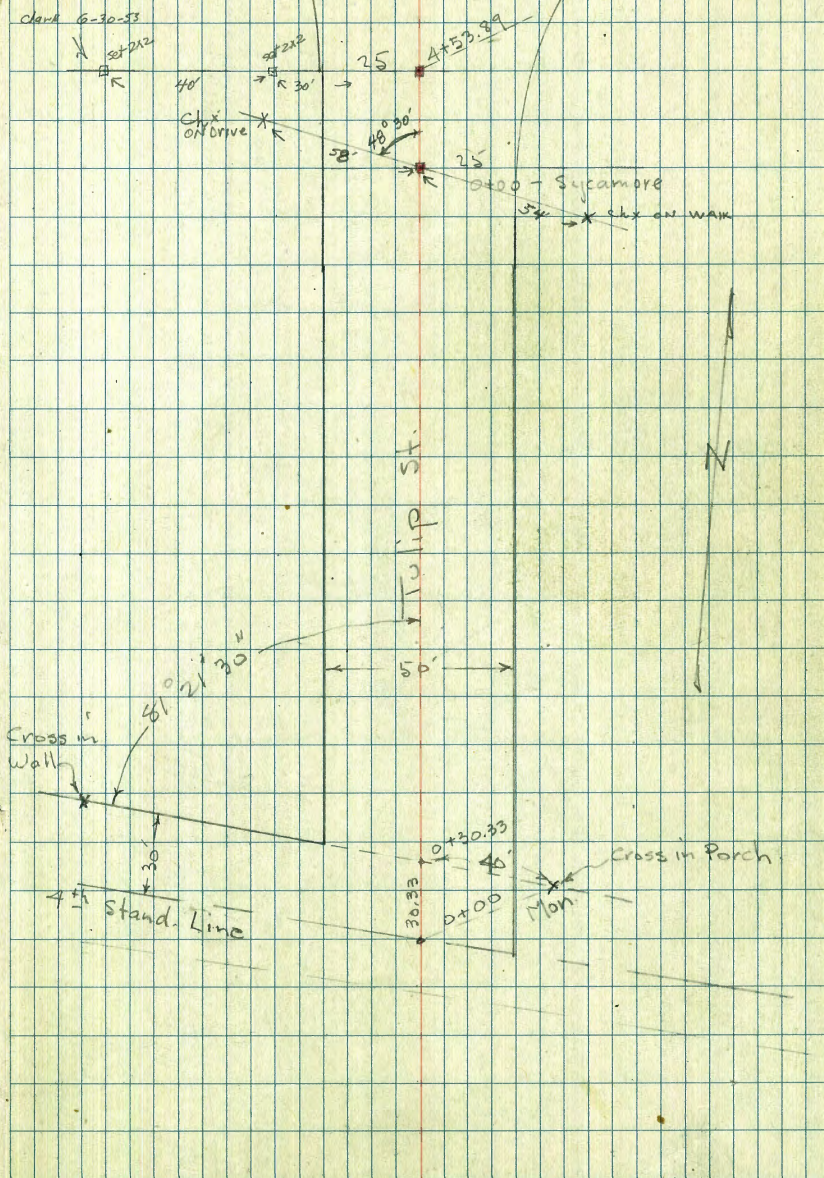 6-30-53
set 2x2
set 2x2
40'
30'
25
4+53.89
Chx
ON Drive
58-
48° 30'
25
0+00 - Sycamore
54
chx ON WALK
N
Tulip St.
50'
81° 21' 30"
Cross in
Wall
30'
4th Stand. Line
0+30.33
40'
Cross in Porch
30.33
0+00
Mon.